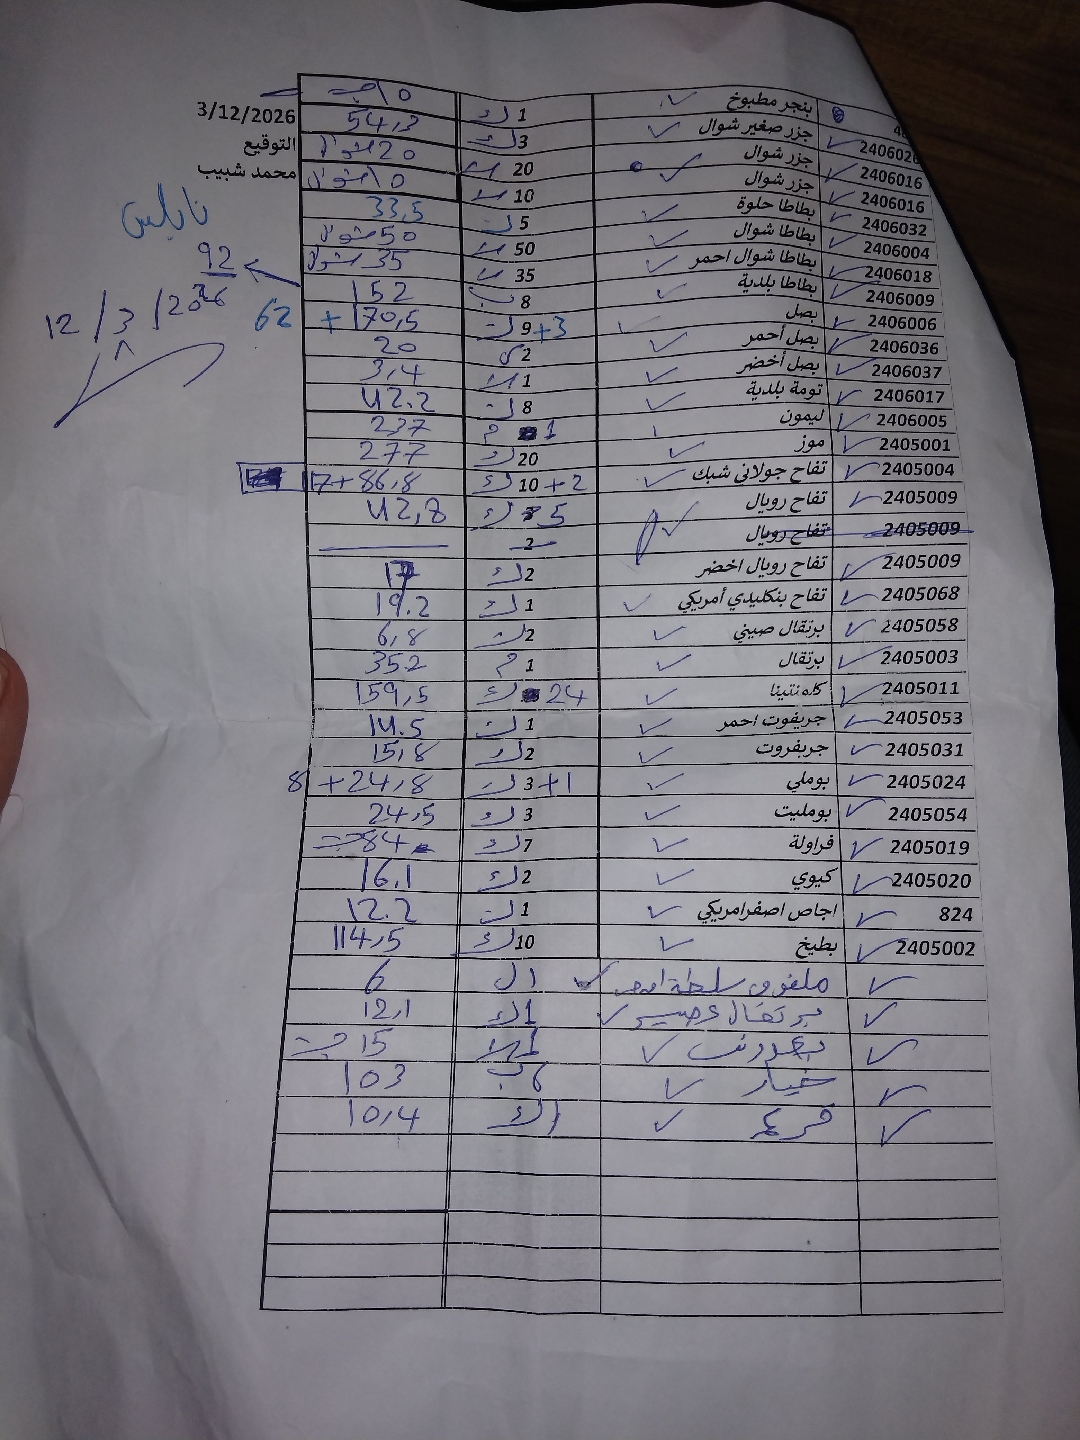 3/12/2026
التوقيع
محمد شبيب
نابلس
92
12/3/2026
62
بنجر مطبوخ 1 ك 10 حبة
2406026 جزر صغير شوال 3 ك 54,3
2406016 جزر شوال 20 ش 20 شوال
2406016 جزر شوال 10 ش 10 شوال
2406032 بطاطا حلوة 5 ك 33,5
2406004 بطاطا شوال 50 ش 50 شوال
2406018 بطاطا شوال احمر 35 ش 35 شوال
2406009 بطاطا بلدية 8 ب 152
2406006 بصل 9+3 ك 170,5 +
2406036 بصل أحمر 2 20
2406037 بصل أخضر 1 3,4
2406017 تومة بلدية 8 ك 42.2
2406005 ليمون 1 م 237
2405001 موز 20 ك 277
2405004 تفاح جولاني شبك 10+2 ك 17+86,8
2405009 تفاح رويال 5 ك 42,8
2405009 تفاح رويال 2
2405009 تفاح رويال اخضر 2 ك 17
2405068 تفاح بنكليدي أمريكي 1 ك 19.2
2405058 برتقال صيني 2 ك 6,8
2405003 برتقال 1 م 352
2405011 كلمنتينا 24 ك 159,5
2405053 جريفوت احمر 1 ك 14.5
2405031 جربفروت 2 ك 15,8
2405024 بوملي 3+1 ك 8+24,8
2405054 بومليت 3 ك 24,5
2405019 فراولة 7 ك 84
2405020 كيوي 2 ك 16.1
824 اجاص اصفرامريكي 1 ك 12.2
2405002 بطيخ 10 ك 114,5
ملفوف سلطة احمر 6
برتقال عصير 1 ك 12,1
بقدونس 15 حبة
خيار 6 ب 103
قرع 1 ك 10,4